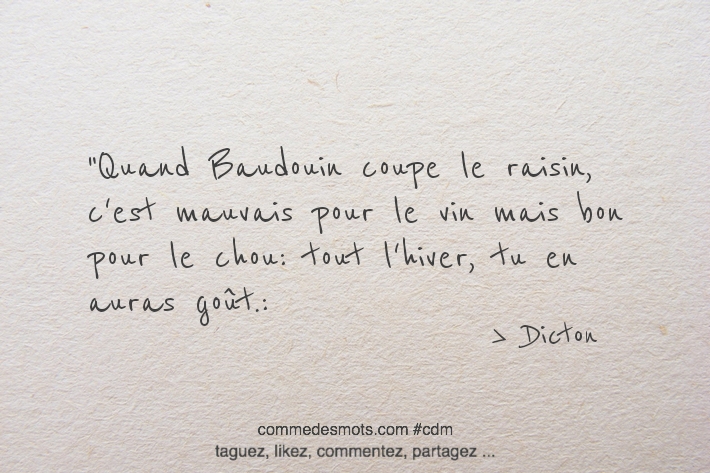 "Quand Baudouin coupe le raisin,
c'est mauvais pour le vin mais bon
pour le chou: tout l'hiver, tu en
auras goût.:
> Dicton
commedesmots.com #cdm
taguez, likez, commentez, partagez ...